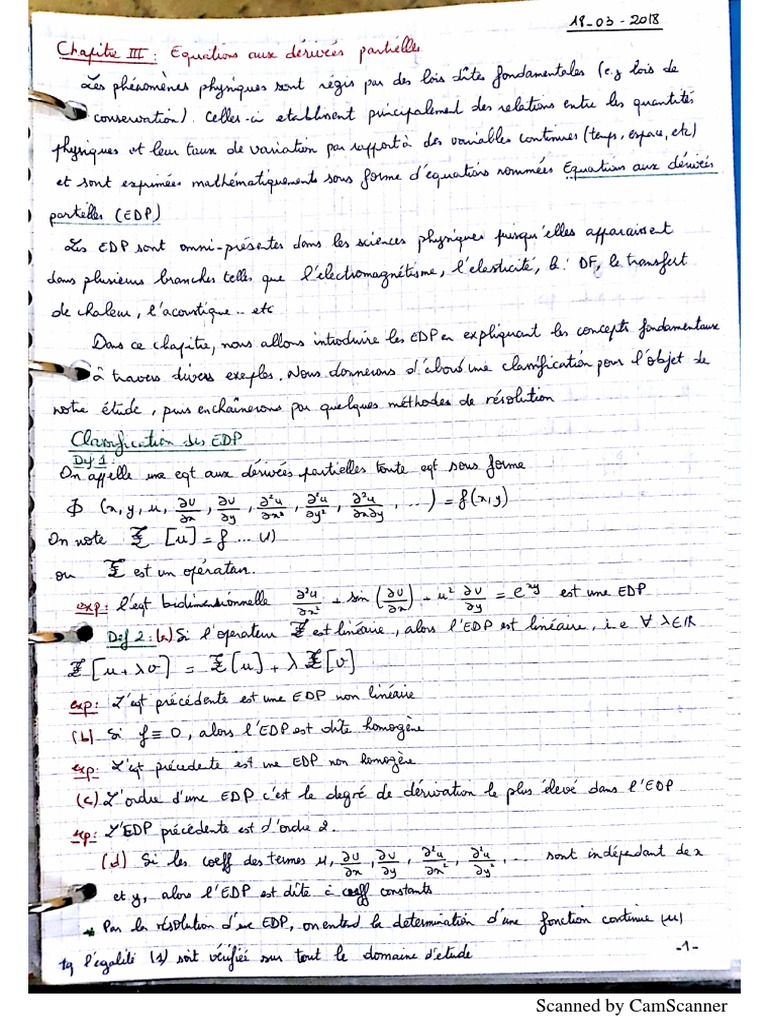 18-03-2018
Chapitre III : Equations aux dérivées partielles
Les phénomènes physiques sont régis par des lois dîtes fondamentales (e.g lois de
conservation). Celles-ci etablissent principalement des relations entre les quantités
physiques et leur taux de variation par rapport à des variables continues (temps, espace, etc)
et sont exprimées mathématiquements sous forme d'équations nommées Equations aux dérivés
partielles (EDP)
Les EDP sont omni-présentes dans les sciences physiques puisqu'elles apparaissent
dans plusieurs branches telles que l'électromagnétisme, l'elasticité, DF, le transfert
de chaleur, l'acoustique .. etc
Dans ce chapitre, nous allons introduire les EDP en expliquant les concepts fondamentaux
à travers divers exeples. Nous donnerons d'abord une classification pour l'objet de
notre étude, puis enchaînerons par quelques méthodes de résolution
Classification des EDP
Def 1:
On appelle une eqt aux dérivées partielles toute eqt sous forme
Φ (x, y, u, ∂u/∂x, ∂u/∂y, ∂²u/∂x², ∂²u/∂y², ∂²u/∂x∂y, ...) = f(x,y)
On note ℒ [u] = f ... (1)
ou ℒ est un opératan.
exp: l'eqt bidimensionnelle ∂²u/∂x² + sin (∂u/∂x) + u² ∂u/∂y = e^xy est une EDP
Def 2: (a) Si l'operateur ℒ est linéaire, alors l'EDP est linéaire, i.e ∀ λ∈ℝ
ℒ[u + λv] = ℒ[u] + λ ℒ[v]
exp: L'eqt précédente est une EDP non linéaire
(b) Si f ≡ 0, alors l'EDP est dite homogène
exp: L'eqt précedente est une EDP non homogène
(c) L'ordre d'une EDP c'est le degré de dérivation le plus élevé dans l'EDP
exp: L'EDP précédente est d'ordre 2.
(d) Si les coeff des termes u, ∂u/∂x, ∂u/∂y, ∂²u/∂x², ∂²u/∂y², ... sont indépendant de x
et y, alors l'EDP est dîte à coeff constants
* Par la résolution d'une EDP, on entend la determination d'une fonction continue (u)
tq l'égalité (1) soit vérifiée sur tout le domaine d'étude
-1-
Scanned by CamScanner